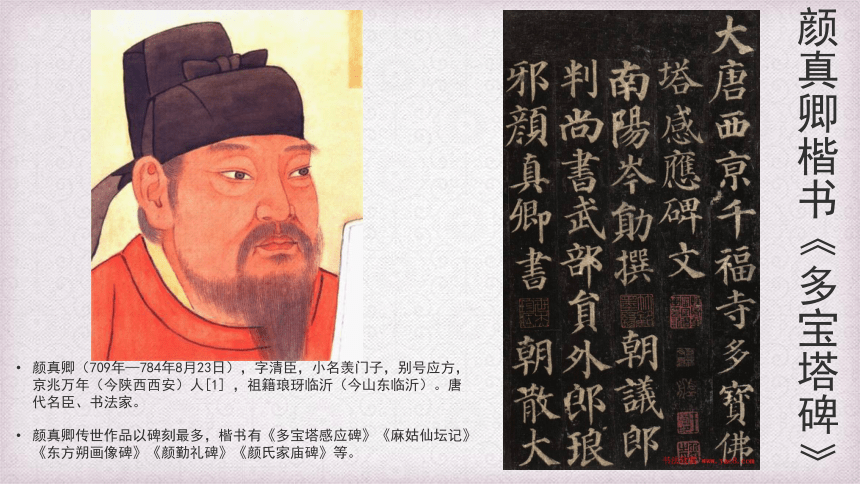 颜真卿楷书《多宝塔碑》
大唐西京千福寺多寶佛
塔感應碑文
南陽岑勛撰 朝議郎
判尚書武部員外郎琅
邪顏真卿書 朝散大
• 颜真卿（709年—784年8月23日），字清臣，小名羡门子，别号应方，
京兆万年（今陕西西安）人[1] ，祖籍琅玡临沂（今山东临沂）。唐
代名臣、书法家。
• 颜真卿传世作品以碑刻最多，楷书有《多宝塔感应碑》《麻姑仙坛记》
《东方朔画像碑》《颜勤礼碑》《颜氏家庙碑》等。